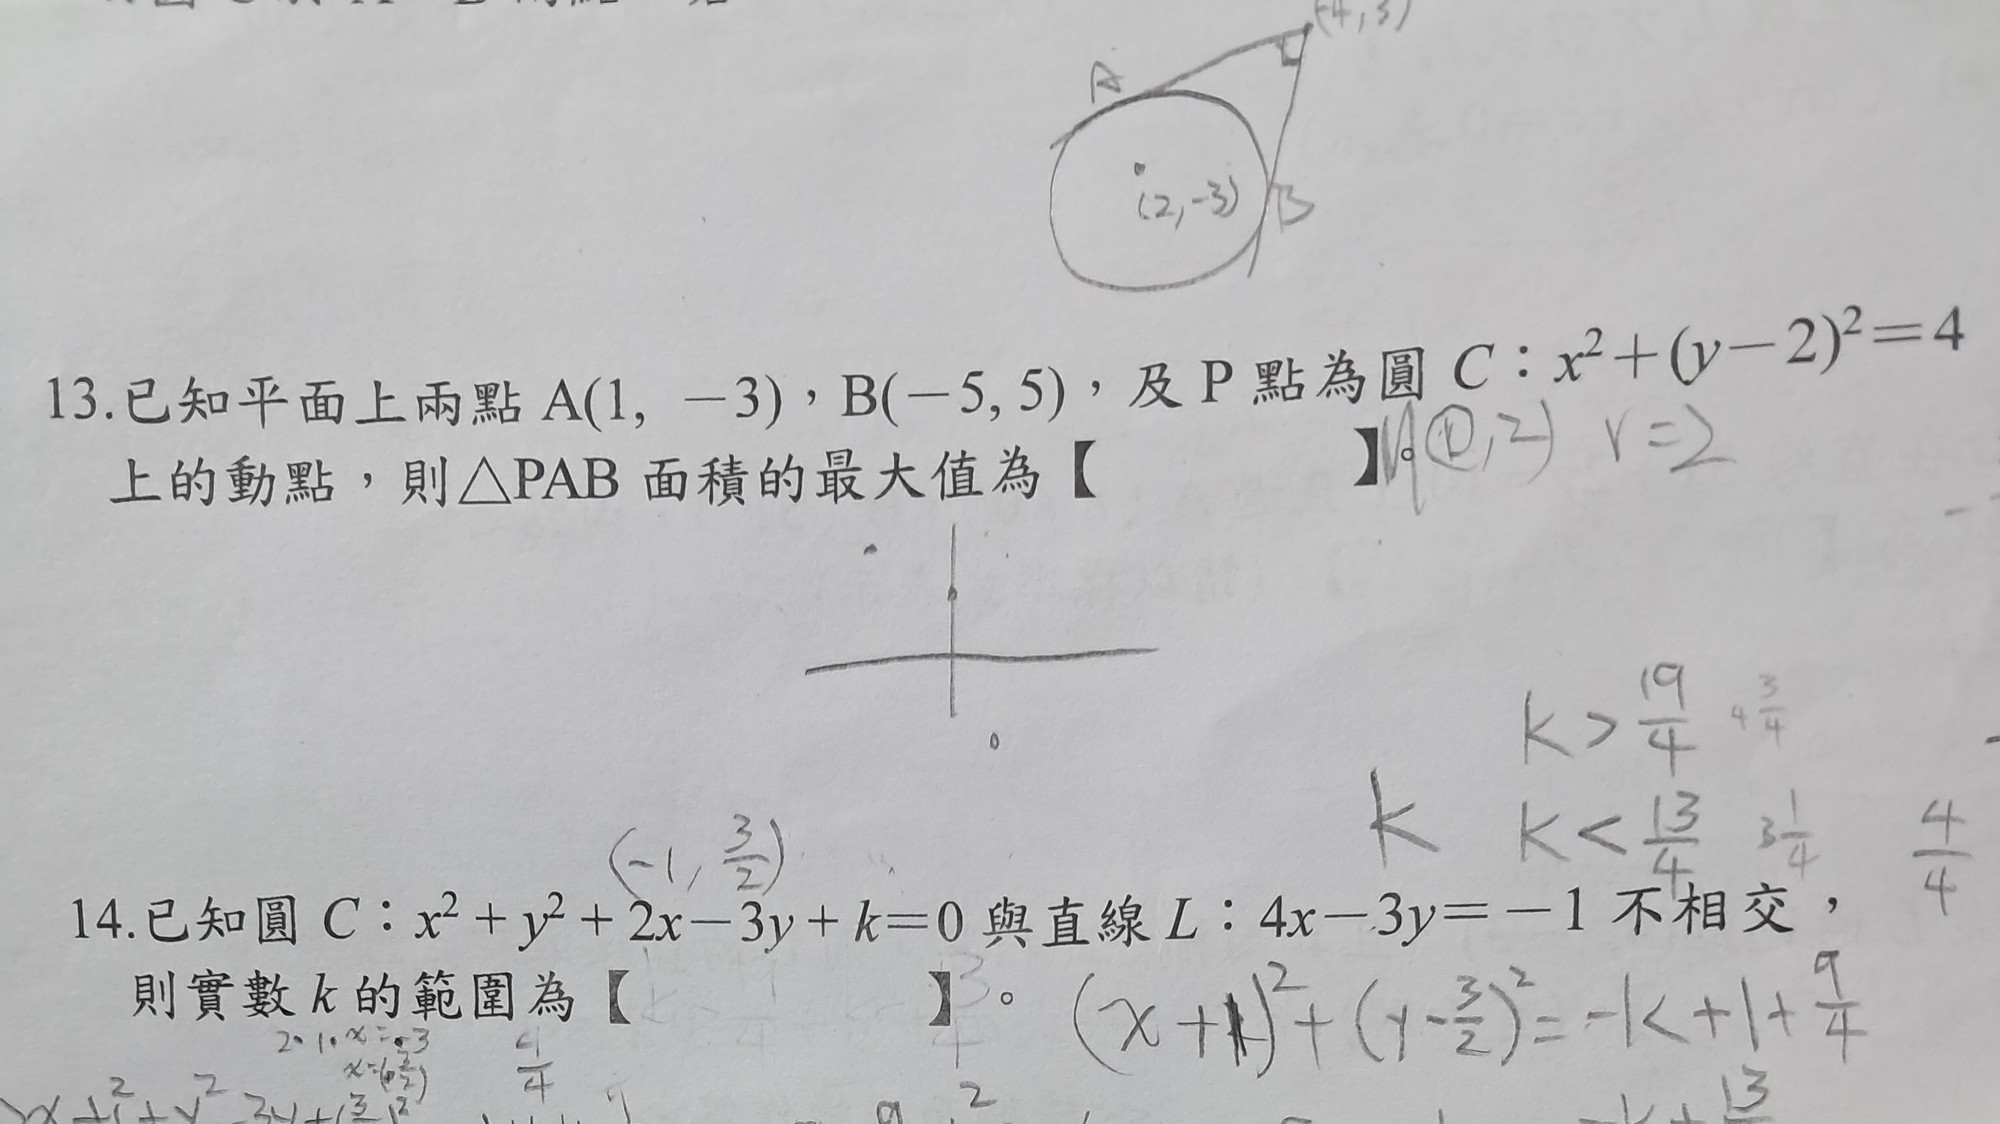 (-4, 3)
A
(2,-3)
B
13.已知平面上兩點 A(1, －3)，B(－5, 5)，及 P 點為圓 C：x²＋(y－2)²＝4
上的動點，則△PAB 面積的最大值為【 】。
(0,2) r=2
k > 19/4 4 3/4
k
k < 13/4 3 1/4 4/4
(-1, 3/2)
14.已知圓 C：x²＋y²＋2x－3y＋k＝0 與直線 L：4x－3y＝－1 不相交，
則實數 k 的範圍為【 】。
(x+1)²+(y-3/2)²=-k+1+9/4
2·1·x=-3
4/4
-k+13